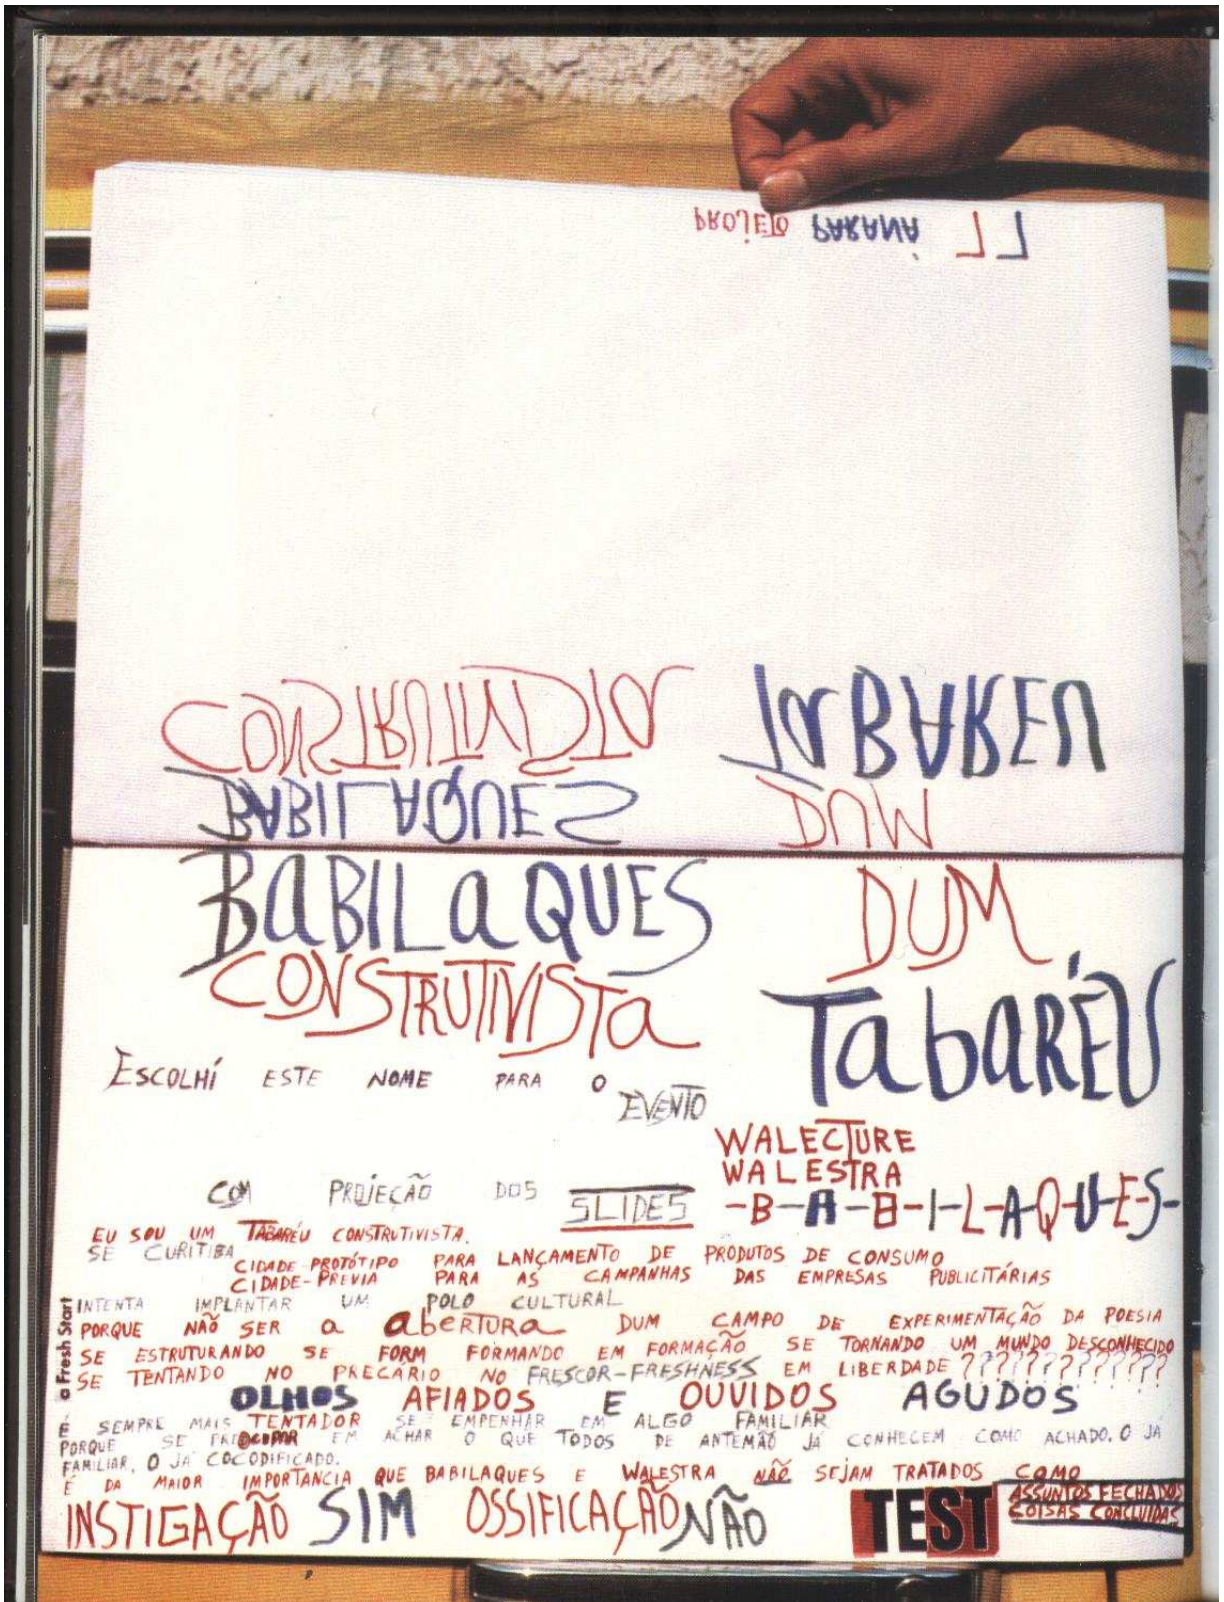 PROJETO PARANÁ
CONSTRUTIVISTA TABAREU
BABILAQUES DUM
BABILAQUES DUM
CONSTRUTIVISTA TABARÉU
ESCOLHÍ ESTE NOME PARA O EVENTO
WALECTURE
WALESTRA
COM PROJEÇÃO DOS SLIDES -B-A-B-I-L-A-Q-U-E-S-
EU SOU UM TABARÉU CONSTRUTIVISTA.
SE CURITIBA
CIDADE-PROTÓTIPO PARA LANÇAMENTO DE PRODUTOS DE CONSUMO
CIDADE-PRÉVIA PARA AS CAMPANHAS DAS EMPRESAS PUBLICITÁRIAS
INTENTA IMPLANTAR UM POLO CULTURAL
PORQUE NÃO SER a abERTURA DUM CAMPO DE EXPERIMENTAÇÃO DA POESIA
SE ESTRUTURANDO SE FORM FORMANDO EM FORMAÇÃO SE TORNANDO UM MUNDO DESCONHECIDO
SE TENTANDO NO PRECÁRIO NO FRESCOR-FRESHNESS EM LIBERDADE ?????????????
o Fresh Start
OLHOS AFIADOS E OUVIDOS AGUDOS
É SEMPRE MAIS TENTADOR SE EMPENHAR EM ALGO FAMILIAR
PORQUE SE PREOCUPAR EM ACHAR O QUE TODOS DE ANTEMÃO JÁ CONHECEM COMO ACHADO. O JÁ
FAMILIAR, O JÁ COCODIFICADO.
É DA MAIOR IMPORTANCIA QUE BABILAQUES E WALESTRA NÃO SEJAM TRATADOS COMO
ASSUNTOS FECHADOS
COISAS CONCLUÍDAS
INSTIGAÇÃO SIM OSSIFICAÇÃO NÃO TEST